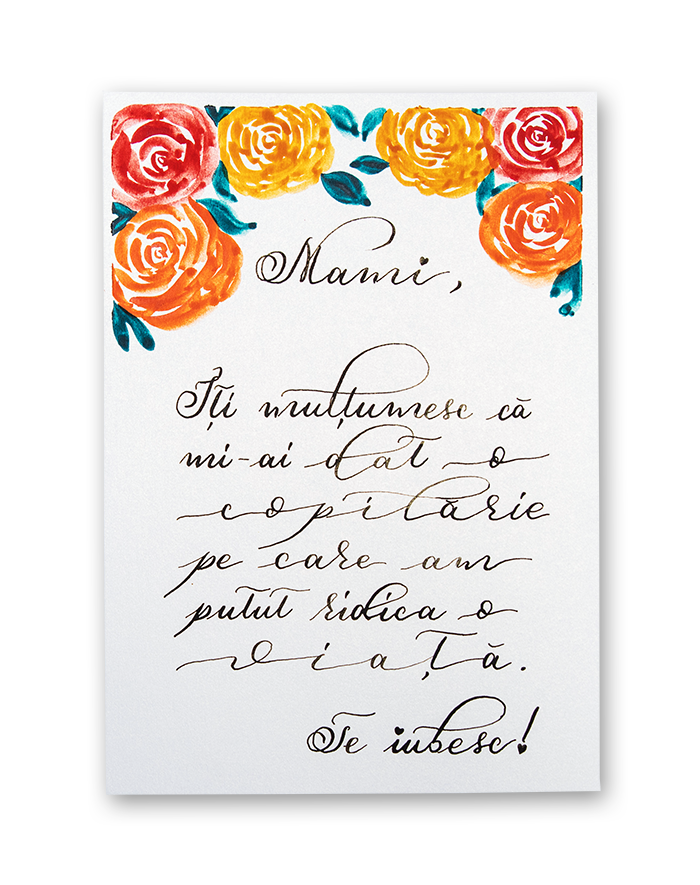 Mami,
Îți mulțumesc că
mi-ai dat o
copilărie
pe care am
putut ridica o
viață.
Te iubesc!